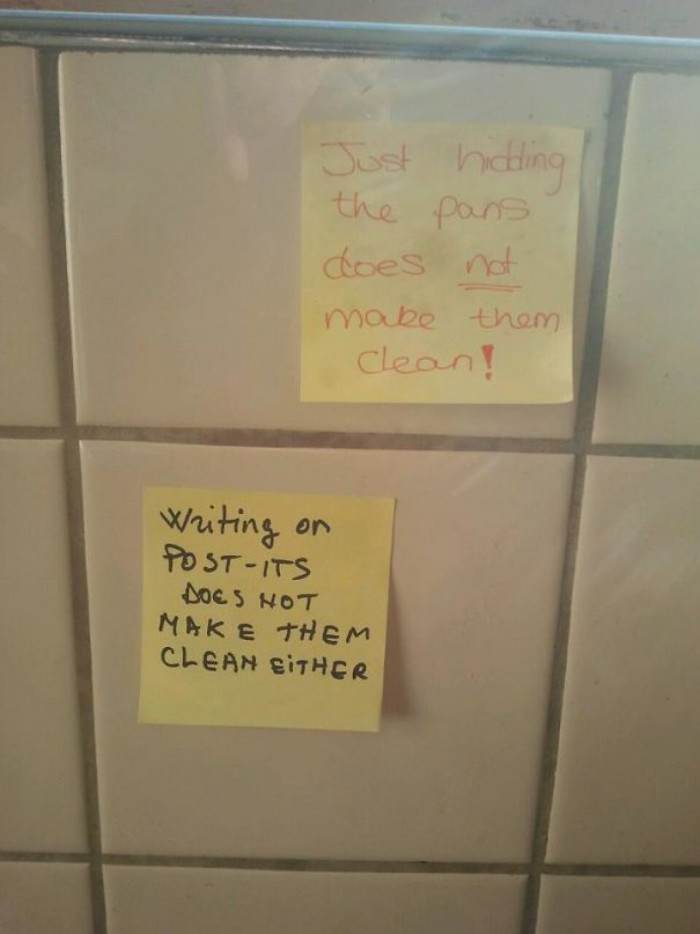 Just hidding
the pans
does not
make them
clean!
Writing on
POST-ITS
DOES NOT
MAKE THEM
CLEAN EITHER